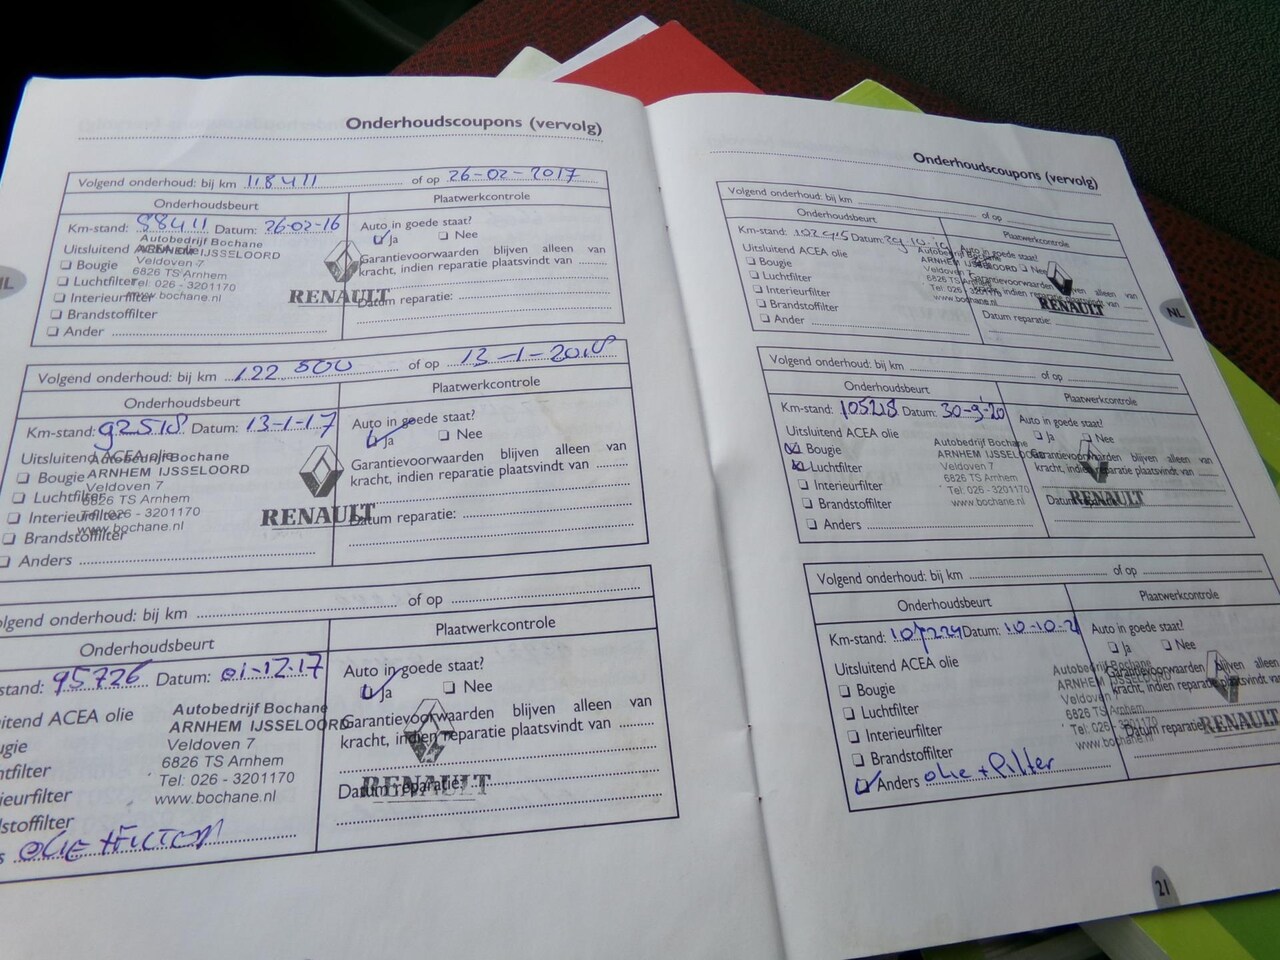 Onderhoudscoupons (vervolg)
Volgend onderhoud: bij km 118411 of op 26-02-2017
Onderhoudsbeurt
Plaatwerkcontrole
Km-stand: 88411 Datum: 26-02-16
Auto in goede staat?
Ja Nee
Uitsluitend ACEA olie
Autobedrijf Bochane
ARNHEM IJSSELOORD
Veldoven 7
6826 TS Arnhem
Tel: 026 - 3201170
www.bochane.nl
Bougie
Luchtfilter
Interieurfilter
Brandstoffilter
Ander
RENAULT
Garantievoorwaarden blijven alleen van
kracht, indien reparatie plaatsvindt van
Datum reparatie:
Volgend onderhoud: bij km 122 500 of op 13-1-2018
Onderhoudsbeurt
Plaatwerkcontrole
Km-stand: 92518 Datum: 13-1-17
Auto in goede staat?
Ja Nee
Uitsluitend ACEA olie
Autobedrijf Bochane
ARNHEM IJSSELOORD
Veldoven 7
6826 TS Arnhem
Tel: 026 - 3201170
www.bochane.nl
Bougie
Luchtfilter
Interieurfilter
Brandstoffilter
Anders
RENAULT
Garantievoorwaarden blijven alleen van
kracht, indien reparatie plaatsvindt van
Datum reparatie:
olgend onderhoud: bij km of op
Onderhoudsbeurt
Plaatwerkcontrole
stand: 95726 Datum: 01-12-17
Auto in goede staat?
Ja Nee
itend ACEA olie
Autobedrijf Bochane
ARNHEM IJSSELOORD
Veldoven 7
6826 TS Arnhem
Tel: 026 - 3201170
www.bochane.nl
ugie
htfilter
ieurfilter
dstoffilter
s OLIE + FILTER
Garantievoorwaarden blijven alleen van
kracht, indien reparatie plaatsvindt van
RENAULT
Datum reparatie:
Onderhoudscoupons (vervolg)
Volgend onderhoud: bij km of op
Onderhoudsbeurt
Plaatwerkcontrole
Km-stand: Datum:
Auto in goede staat?
Nee
Uitsluitend ACEA olie
ARNHEM IJSSELOORD
Veldoven
6826 TS Arnhem
Tel: 026
www.bochane.nl
Bougie
Luchtfilter
Interieurfilter
Brandstoffilter
Ander
Garantievoorwaarden blijven alleen van
kracht, indien reparatie plaatsvindt van
RENAULT
Datum reparatie:
NL
Volgend onderhoud: bij km of op
Onderhoudsbeurt
Plaatwerkcontrole
Km-stand: 105218 Datum: 30-9-20
Auto in goede staat?
Ja Nee
Uitsluitend ACEA olie
Autobedrijf Bochane
ARNHEM IJSSELOORD
Veldoven 7
6826 TS Arnhem
Tel: 026 - 3201170
www.bochane.nl
Bougie
Luchtfilter
Interieurfilter
Brandstoffilter
Anders
Garantievoorwaarden blijven alleen van
kracht, indien reparatie plaatsvindt van
RENAULT
Datum
Volgend onderhoud: bij km of op
Onderhoudsbeurt
Plaatwerkcontrole
Km-stand: 107229 Datum: 10-10-21
Auto in goede staat?
Ja Nee
Uitsluitend ACEA olie
Autobedrijf Bochane
ARNHEM
Veldoven 7
6826 TS Arnhem
Tel: 026 - 3201170
www.bochane.nl
Bougie
Luchtfilter
Interieurfilter
Brandstoffilter
Anders olie + filter
Garantievoorwaarden blijven alleen van
kracht, indien reparatie plaatsvindt van
Datum reparatie
RENAULT
21